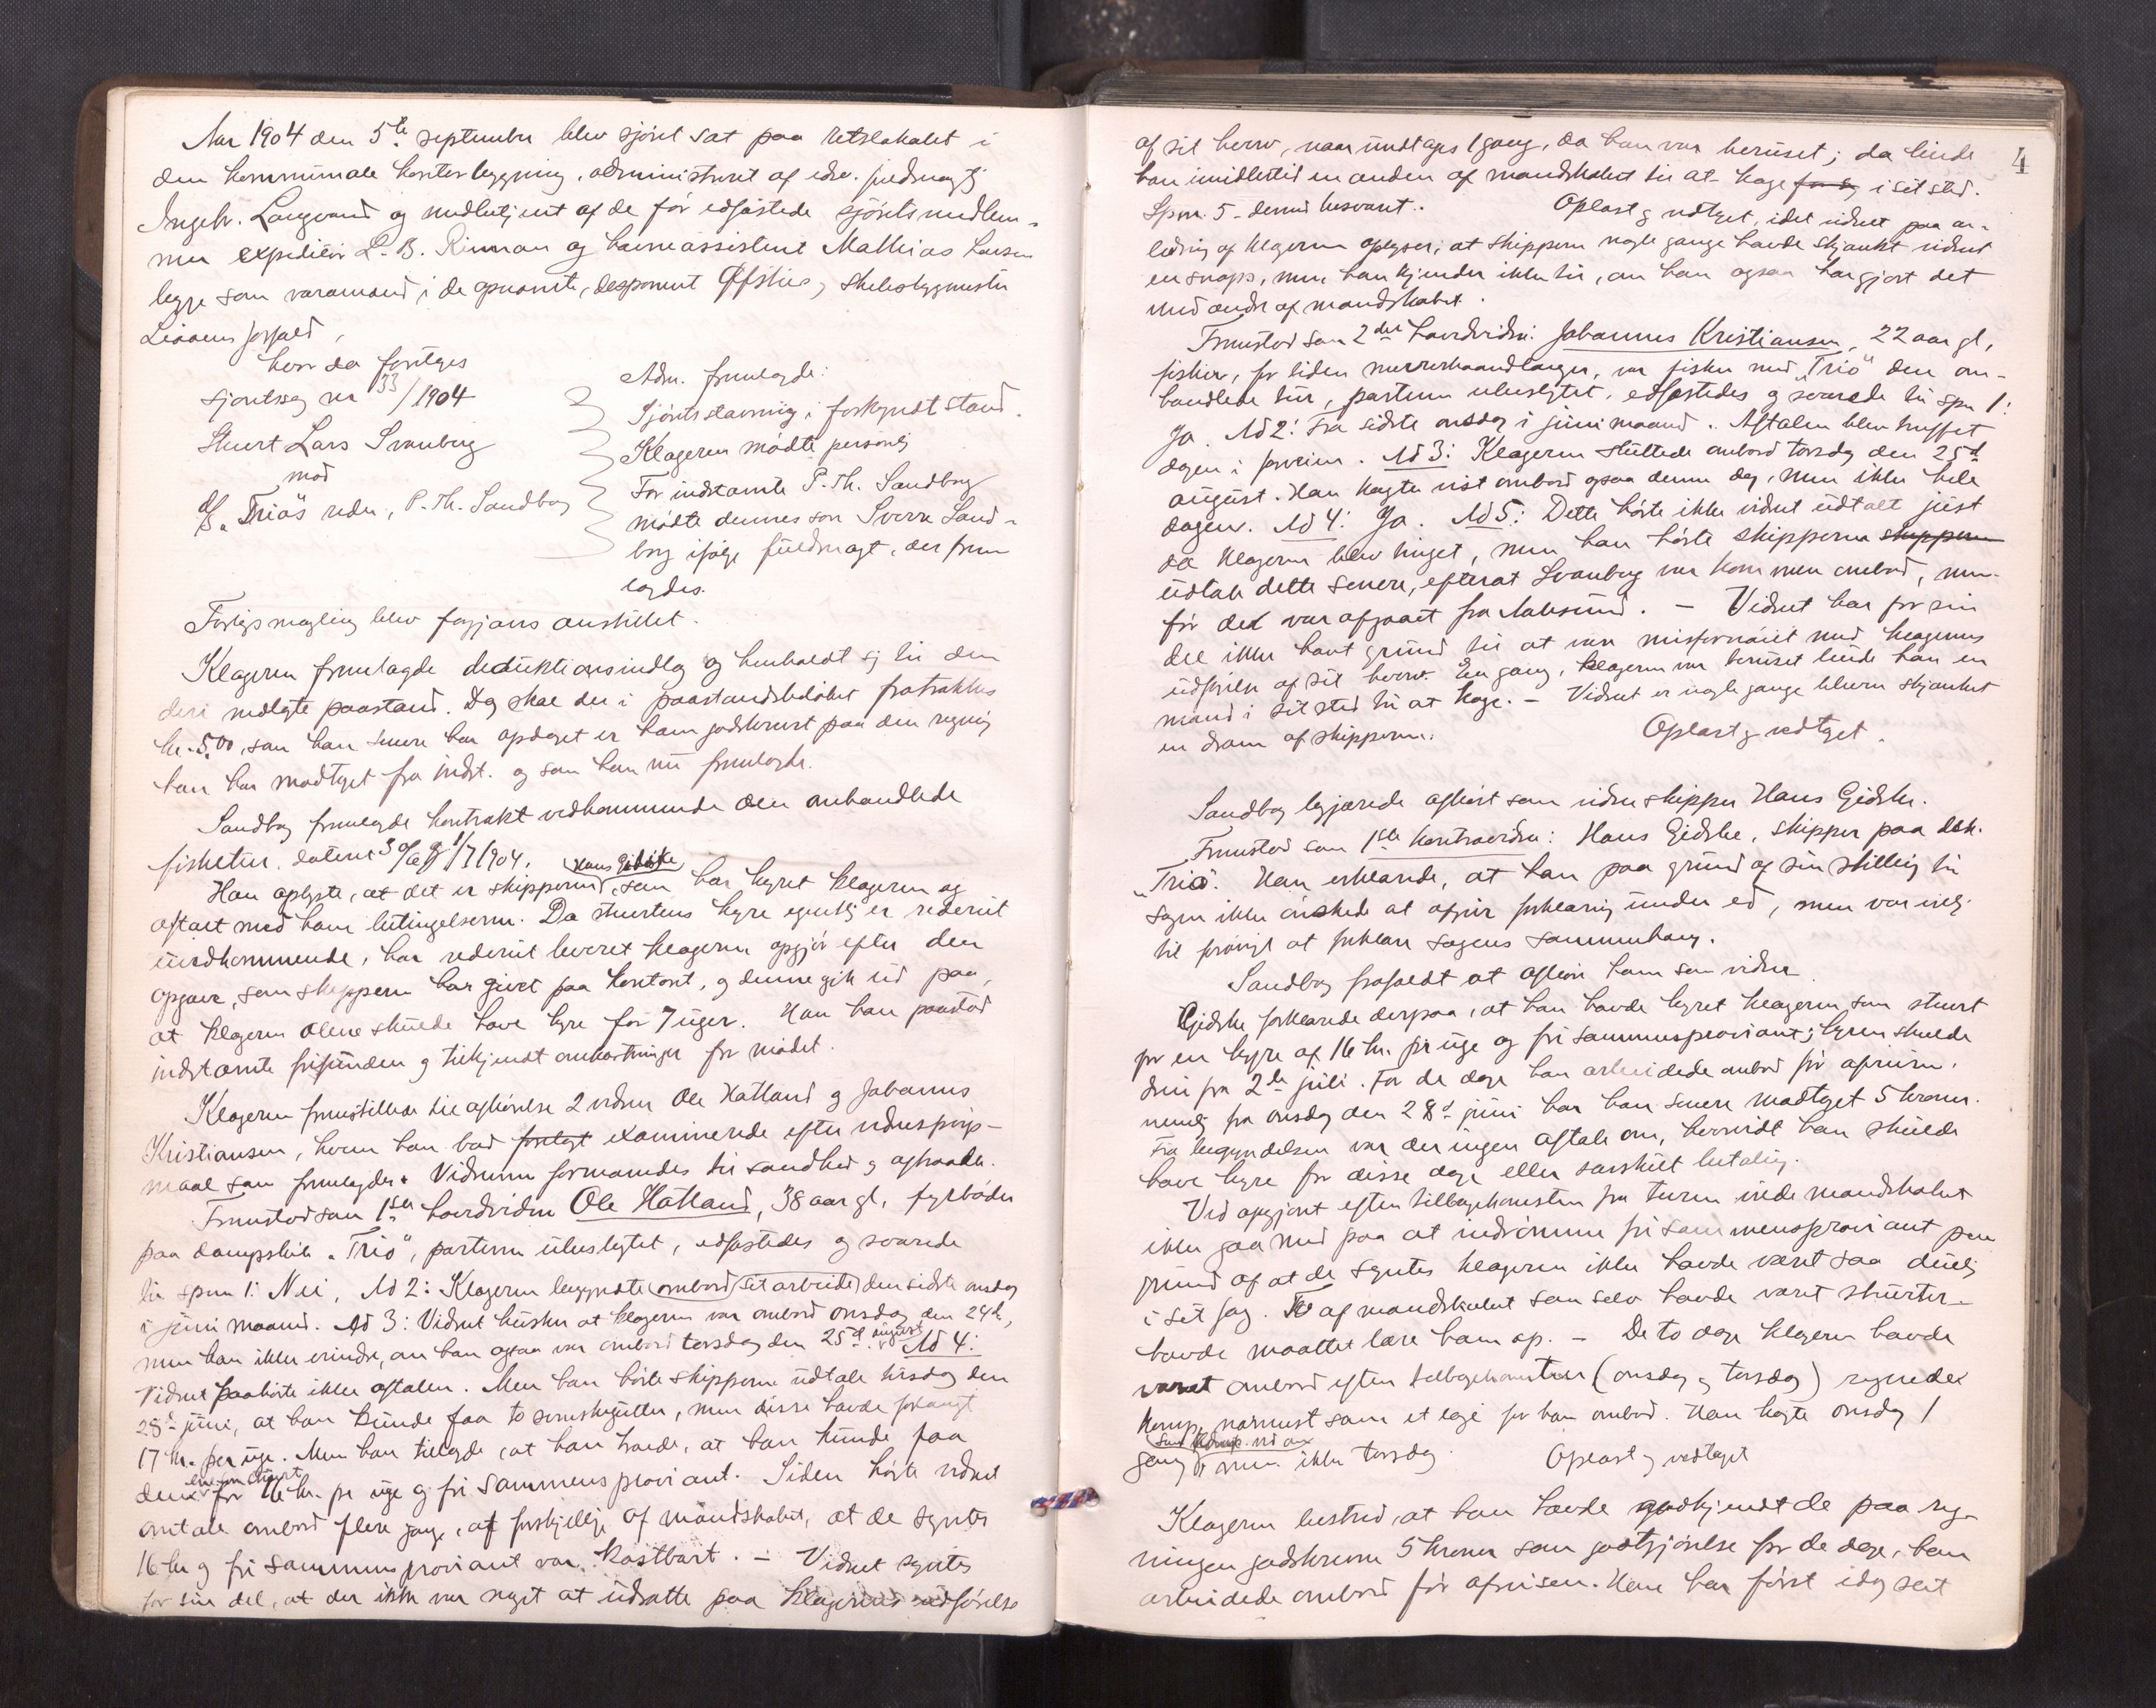 Aar 1904 den 5te september blev sjöret sat paa retslokalet i
den kommunale kontorbygning, administreret af edsv. fuldmægtig
Ingebr. Langvand og medbetjent af de før edfæstede sjöretsmedlem-
mer expeditör L. B. Rinnan og havneassistent Mathias Larsen
begge som varamænd i de opnævnte, disponent Øfsties og skibsbygmester
Liaaens forfald,
hvor da foretoges
sjöretssag nr 33/1904
Stuert Lars Svanberg
mod
d/s „Trio"s reder, P. Th. Sandborg
Adm. fremlagde:
Sjöretsstævning i forkyndt stand.
Klageren mødte personlig
For indstævnte P. Th. Sandborg
mødte dennes søn Sverre Sand-
borg ifølge fuldmagt, der frem
lagdes.
Forligsmægling blev forgjæves anstillet.
Klageren fremlagde deduktionsindlæg og henholdt sig til den
deri nedlagte paastand. Dog skal der i paastandsbeløbet fratrækkes
kr. 5.00, som han senere har opdaget er ham godskrevet paa den regning
han har modtaget fra indst. og som han nu fremlagde.
Sandborg fremlagde kontrakt vedkommende den omhandlede
fisketur, dateret 30/6 og 1/7 1904.
Hans Gidske
Han oplyste, at det er skipperen, som har hyret klageren og
aftalt med ham betingelserne. Da stuertens hyre egentlig er rederiet
uvedkommende, har rederiet leveret klageren opgjør efter den
opgave, som skipperen har givet paa kontoret, og denne gik ud paa,
at klageren alene skulde have hyre for 7 uger. Han paastod
indstævnte frifunden og tilkjendt omkostninger for mødet.
Klageren fremstillede til afhörelse 2 vidner Ole Hatland og Johannes
Kristiansen, hvem han bad forelagt examinerede efter vidnespørgs-
maal som fremlagdes. Vidnerne formanedes til sandhed og aftraadte.
Fremstod som 1ste hovedvidne Ole Hatland, 38 aar gl, fyrbøder
paa dampskib „Trio", parterne ubeslægtet, edfæstedes og svarede
til spm 1: Nei. Ad 2: Klageren begyndte ombord sit arbeide den sidste onsdag
i juni maaned. Ad 3: Vidnet husker at klageren var ombord onsdag den 24de,
men kan ikke erindre, om han ogsaa var ombord torsdag den 25de august. Ad 4:
Vidnet paahørte ikke aftalen. Men han hørte skipperen udtale tirsdag den
28de juni, at han kunde faa to svenskegutter, men disse havde forlangt
17 kr. per uge. Men han tilføiede, at han troede, at han kunde faa
en stuert
den for 16 kr. pr uge og fri sammensproviant. Siden hørte vidnet
omtale ombord flere gange, af forskjellige af mandskabet, at de syntes
16 kr og fri sammensproviant var kostbart. – Vidnet syntes
for sin del, at der ikke var noget at udsætte paa klagerens udførelse
4
af sit hverv, naar undtages 1 gang, da han var beruset; da leiede
han imidlertid en anden af mandskabet til at koge for sig i sit sted.
Spm. 5 dermed besvaret. Oplæst og vedtaget, idet vidnet paa an-
ledning af klageren oplyser, at skipperen nogle gange havde skjænket vidnet
en snaps, men han kjender ikke til, om han ogsaa har gjort det
med andre af mandskabet.
Fremstod som 2det hovedvidne: Johannes Kristiansen, 22 aar gl,
fisker, for tiden murerhaandlanger, var fisker med „Trio" den om-
handlede tur, parterne ubeslægtet, edfæstedes og svarede til spm 1:
Ja. Ad 2: Fra sidste onsdag i juni maaned. Aftalen blev truffet
dagen i forveien. Ad 3: Klageren sluttede ombord torsdag den 25de
august. Han kogte vist ombord ogsaa denne dag, men ikke hele
dagen. Ad 4: Ja. Ad 5: Dette hørte ikke vidnet udtalt just
da klageren blev tinget, men han hørte skipperen skipperen
udtale dette senere, efterat Svanberg var kommen ombord, men
før det var afgaaet fra Aalesund. – Vidnet har for sin
del ikke havt grund til at være misfornøiet med klagerens
udførelse af sit hverv. En gang, klageren var beruset leiede han en
mand i sit sted til at koge. – Vidnet er nogle gange bleven skjænket
en dram af skipperen. Oplæst og vedtaget.
Sandborg begjærede afhørt som vidne skipper Hans Gidske.
Fremstod som 1ste kontravidne: Hans Gidske, skipper paa dsk.
„Trio". Han erklærede, at han paa grund af sin stilling til
sagen ikke önskede at afgive forklaring under ed, men var villig
til forøvrigt at forklare sagens sammenhæng.
Sandborg frafaldt at afhøre ham som vidne
Gidske forklarede derpaa, at han havde hyret klageren som stuert
for en hyre af 16 kr. pr uge og fri sammensproviant; hyren skulde
löbe fra 2de juli. For de dage han arbeidede ombord før afreisen,
nemlig fra onsdag den 28de juni har han senere modtaget 5 kroner.
Fra begyndelsen var der ingen aftale om, hvorvidt han skulde
have hyre for disse dage eller særskilt betaling.
Ved opgjøret efter tilbagekomsten fra turen vilde mandskabet
ikke gaa med paa at indrømme fri sammensproviant paa
grund af at de syntes klageren ikke havde været saa duelig
i sit fag. To af mandskabet som selv havde været stuerter
havde maattet lære ham op. – De to dage klageren havde
været ombord efter tilbagekomsten (onsdag og torsdag) regnedes
komp. nærmest som et leie for ham ombord. Han kogte onsdag 1
gang men ikke torsdag. Oplæst og vedtaget
Klageren bestred, at han havde godkjendt de paa reg-
ningen godskrevne 5 kroner som godtgjørelse for de dage, han
arbeidede ombord før afreisen. Han har först idag seet